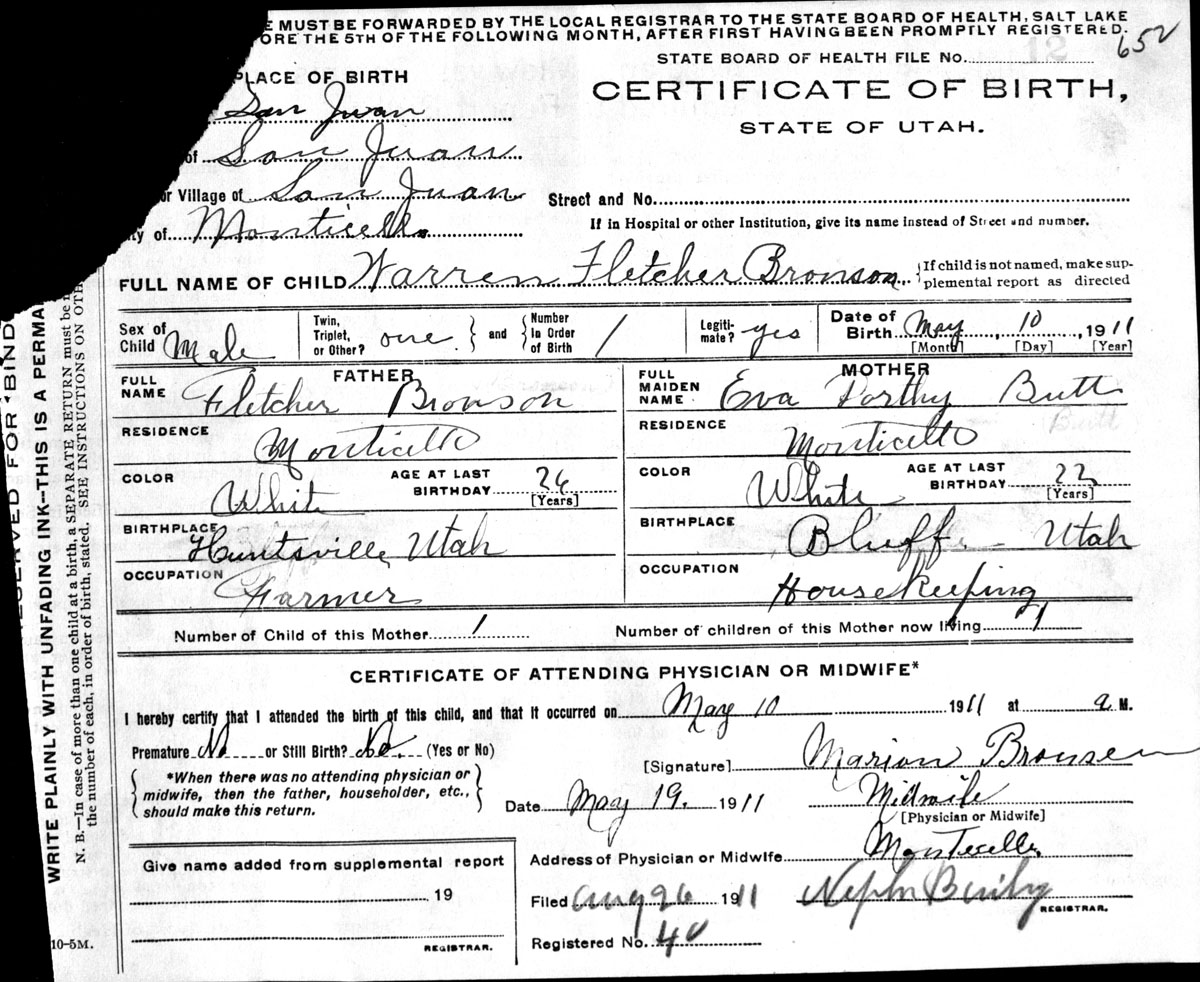 E MUST BE FORWARDED BY THE LOCAL REGISTRAR TO THE STATE BOARD OF HEALTH, SALT LAKE
ORE THE 5TH OF THE FOLLOWING MONTH, AFTER FIRST HAVING BEEN PROMPTLY REGISTERED.
STATE BOARD OF HEALTH FILE No. 652
PLACE OF BIRTH
CERTIFICATE OF BIRTH,
STATE OF UTAH.
San Juan
of San Juan
or Village of San Juan
Street and No.
ty of Monticello
If in Hospital or other Institution, give its name instead of Street and number.
FULL NAME OF CHILD Warren Fletcher Bronson
If child is not named, make sup-
plemental report as directed
Sex of Child Male
Twin, Triplet, or Other? one and Number in Order of Birth 1
Legiti-mate? yes
Date of Birth May 10, 1911
[Month] [Day] [Year]
FATHER
FULL NAME Fletcher Bronson
RESIDENCE Monticello
COLOR White AGE AT LAST BIRTHDAY 26 [Years]
BIRTHPLACE Huntsville, Utah
OCCUPATION Farmer
MOTHER
FULL MAIDEN NAME Eva Dorthy Butt
Butt
RESIDENCE Monticello
COLOR White AGE AT LAST BIRTHDAY 22 [Years]
BIRTHPLACE Bluff - Utah
OCCUPATION House Keeping
Number of Child of this Mother 1
Number of children of this Mother now living 1
CERTIFICATE OF ATTENDING PHYSICIAN OR MIDWIFE*
I hereby certify that I attended the birth of this child, and that it occurred on May 10 1911 at a M.
Premature No or Still Birth? No. (Yes or No)
[Signature] Marion Bronson
*When there was no attending physician or
midwife, then the father, householder, etc.,
should make this return.
Date May 19. 1911 Midwife
[Physician or Midwife]
Give name added from supplemental report
19
REGISTRAR.
Address of Physician or Midwife Monticello
Filed Aug 26 1911
REGISTRAR.
Registered No. 40
10-5M.
RESERVED FOR BIND
WRITE PLAINLY WITH UNFADING INK--THIS IS A PERMA
N. B.—In case of more than one child at a birth, a SEPARATE RETURN must be m
the number of each, in order of birth, stated. SEE INSTRUCTIONS ON OTH